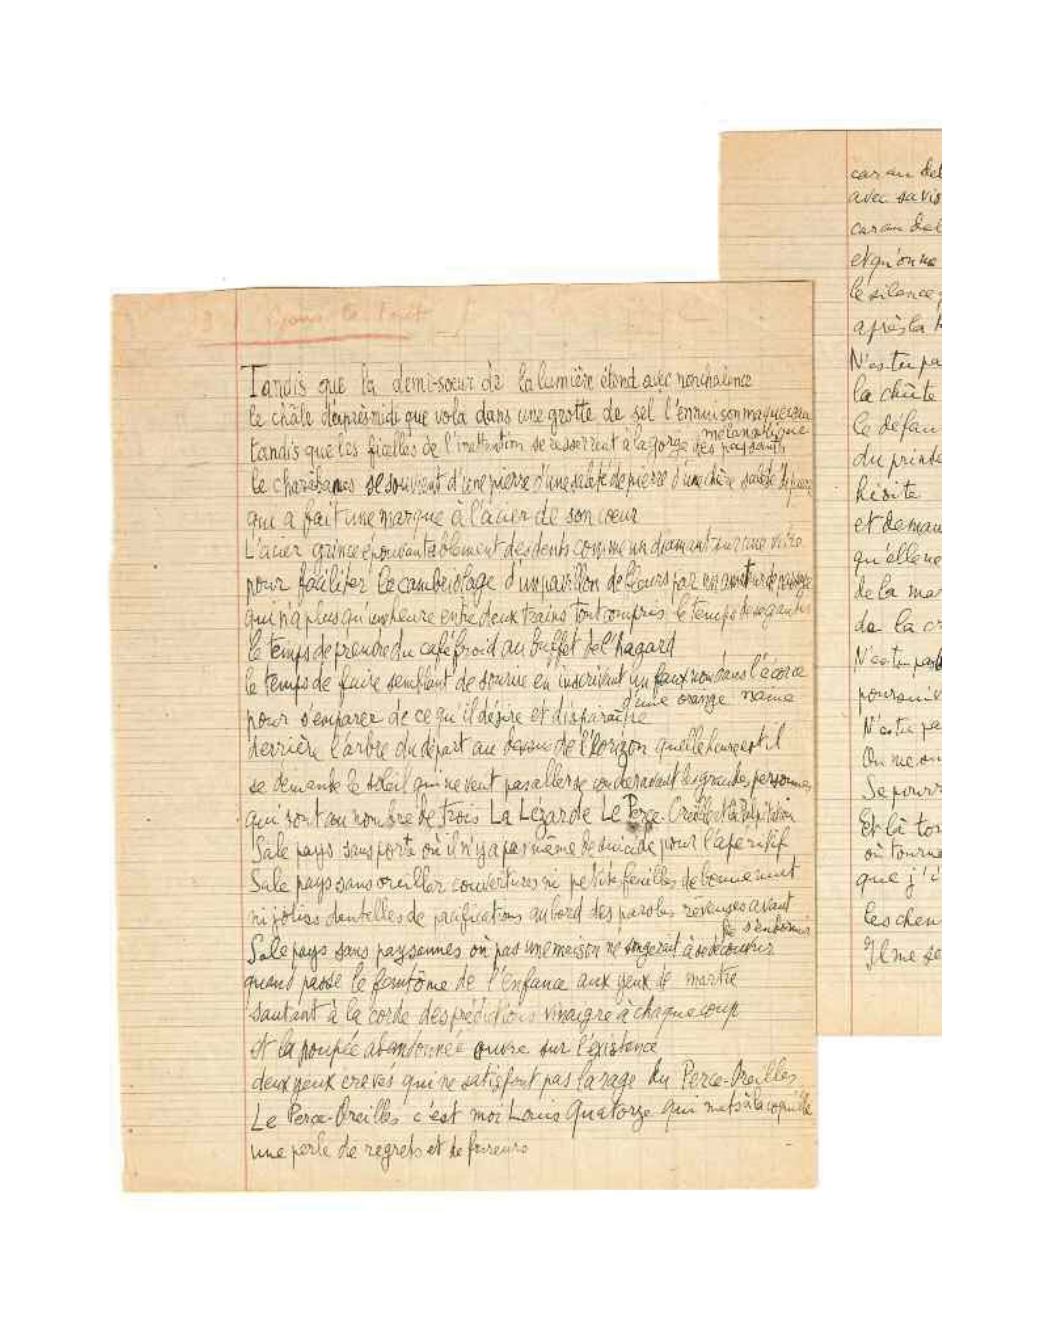 Tandis que la demi-soeur de la lumière étend avec nonchalence
le châle d'après midi que vola dans une grotte de sel l'ennui son maquereau
mélancolique
tandis que les ficelles de l'inattention se resserrent à la gorge des passants
le charàbancs se souvient d'une pierre d'une saleté de pierre d'une chère saleté de pierre
qui a fait une marque à l'acier de son coeur
L'acier grince épouvantablement des dents comme un diamant sur une vitre
pour faciliter le cambriolage d'un pavillon de fleurs par un amateur de passage
qui n'a plus qu'une heure entre deux trains tout compris le temps de se ganter
le temps de prendre du café froid au buffet de l'hagard
le temps de faire semblant de sourire en inscrivant un faux nom dans l'écorce
d'une orange naine
pour s'emparer de ce qu'il désire et disparaître
derrière l'arbre du départ au de l'horizon quelle heure est il
se demande le soleil qui ne veut pas aller se coucher avant les grandes personnes
qui sont au nombre de trois La Lézarde Le Perce-Oreille et la Palpitation
Sale pays sans porte où il n'y a pas même de suicide pour l'apéritif
Sale pays sans oreiller couvertures ni petites feuilles de bonne nuit
ni jolies dentelles de pacifications au bord des paroles rêveuses avant
de s'endormir
Sale pays sans paysannes où pas une maison ne songerait à se découvrir
quand passe le fantôme de l'enfance aux yeux de martre
sautant à la corde des prédictions vinaigre à chaque coup
et la poupée abandonnée ouvre sur l'existence
deux yeux crevés qui ne satisfont pas la rage du Perce-Oreilles
Le Perce-Oreilles c'est moi Louis Quatorze qui mets à la coquille
une perle de regrets et de fureurs
car au del
avec sa vis
car au del
et qu'on ne
le silence
après la
N'es tu pa
la chûte
le défau
du printe
hésite
et deman
qu'elle ne
de la ma
de la cr
N'es tu pas
poursuiv
N'es tu pa
On me
Se pourr
Et là
où tourne
que j'i
les chen
Il me se